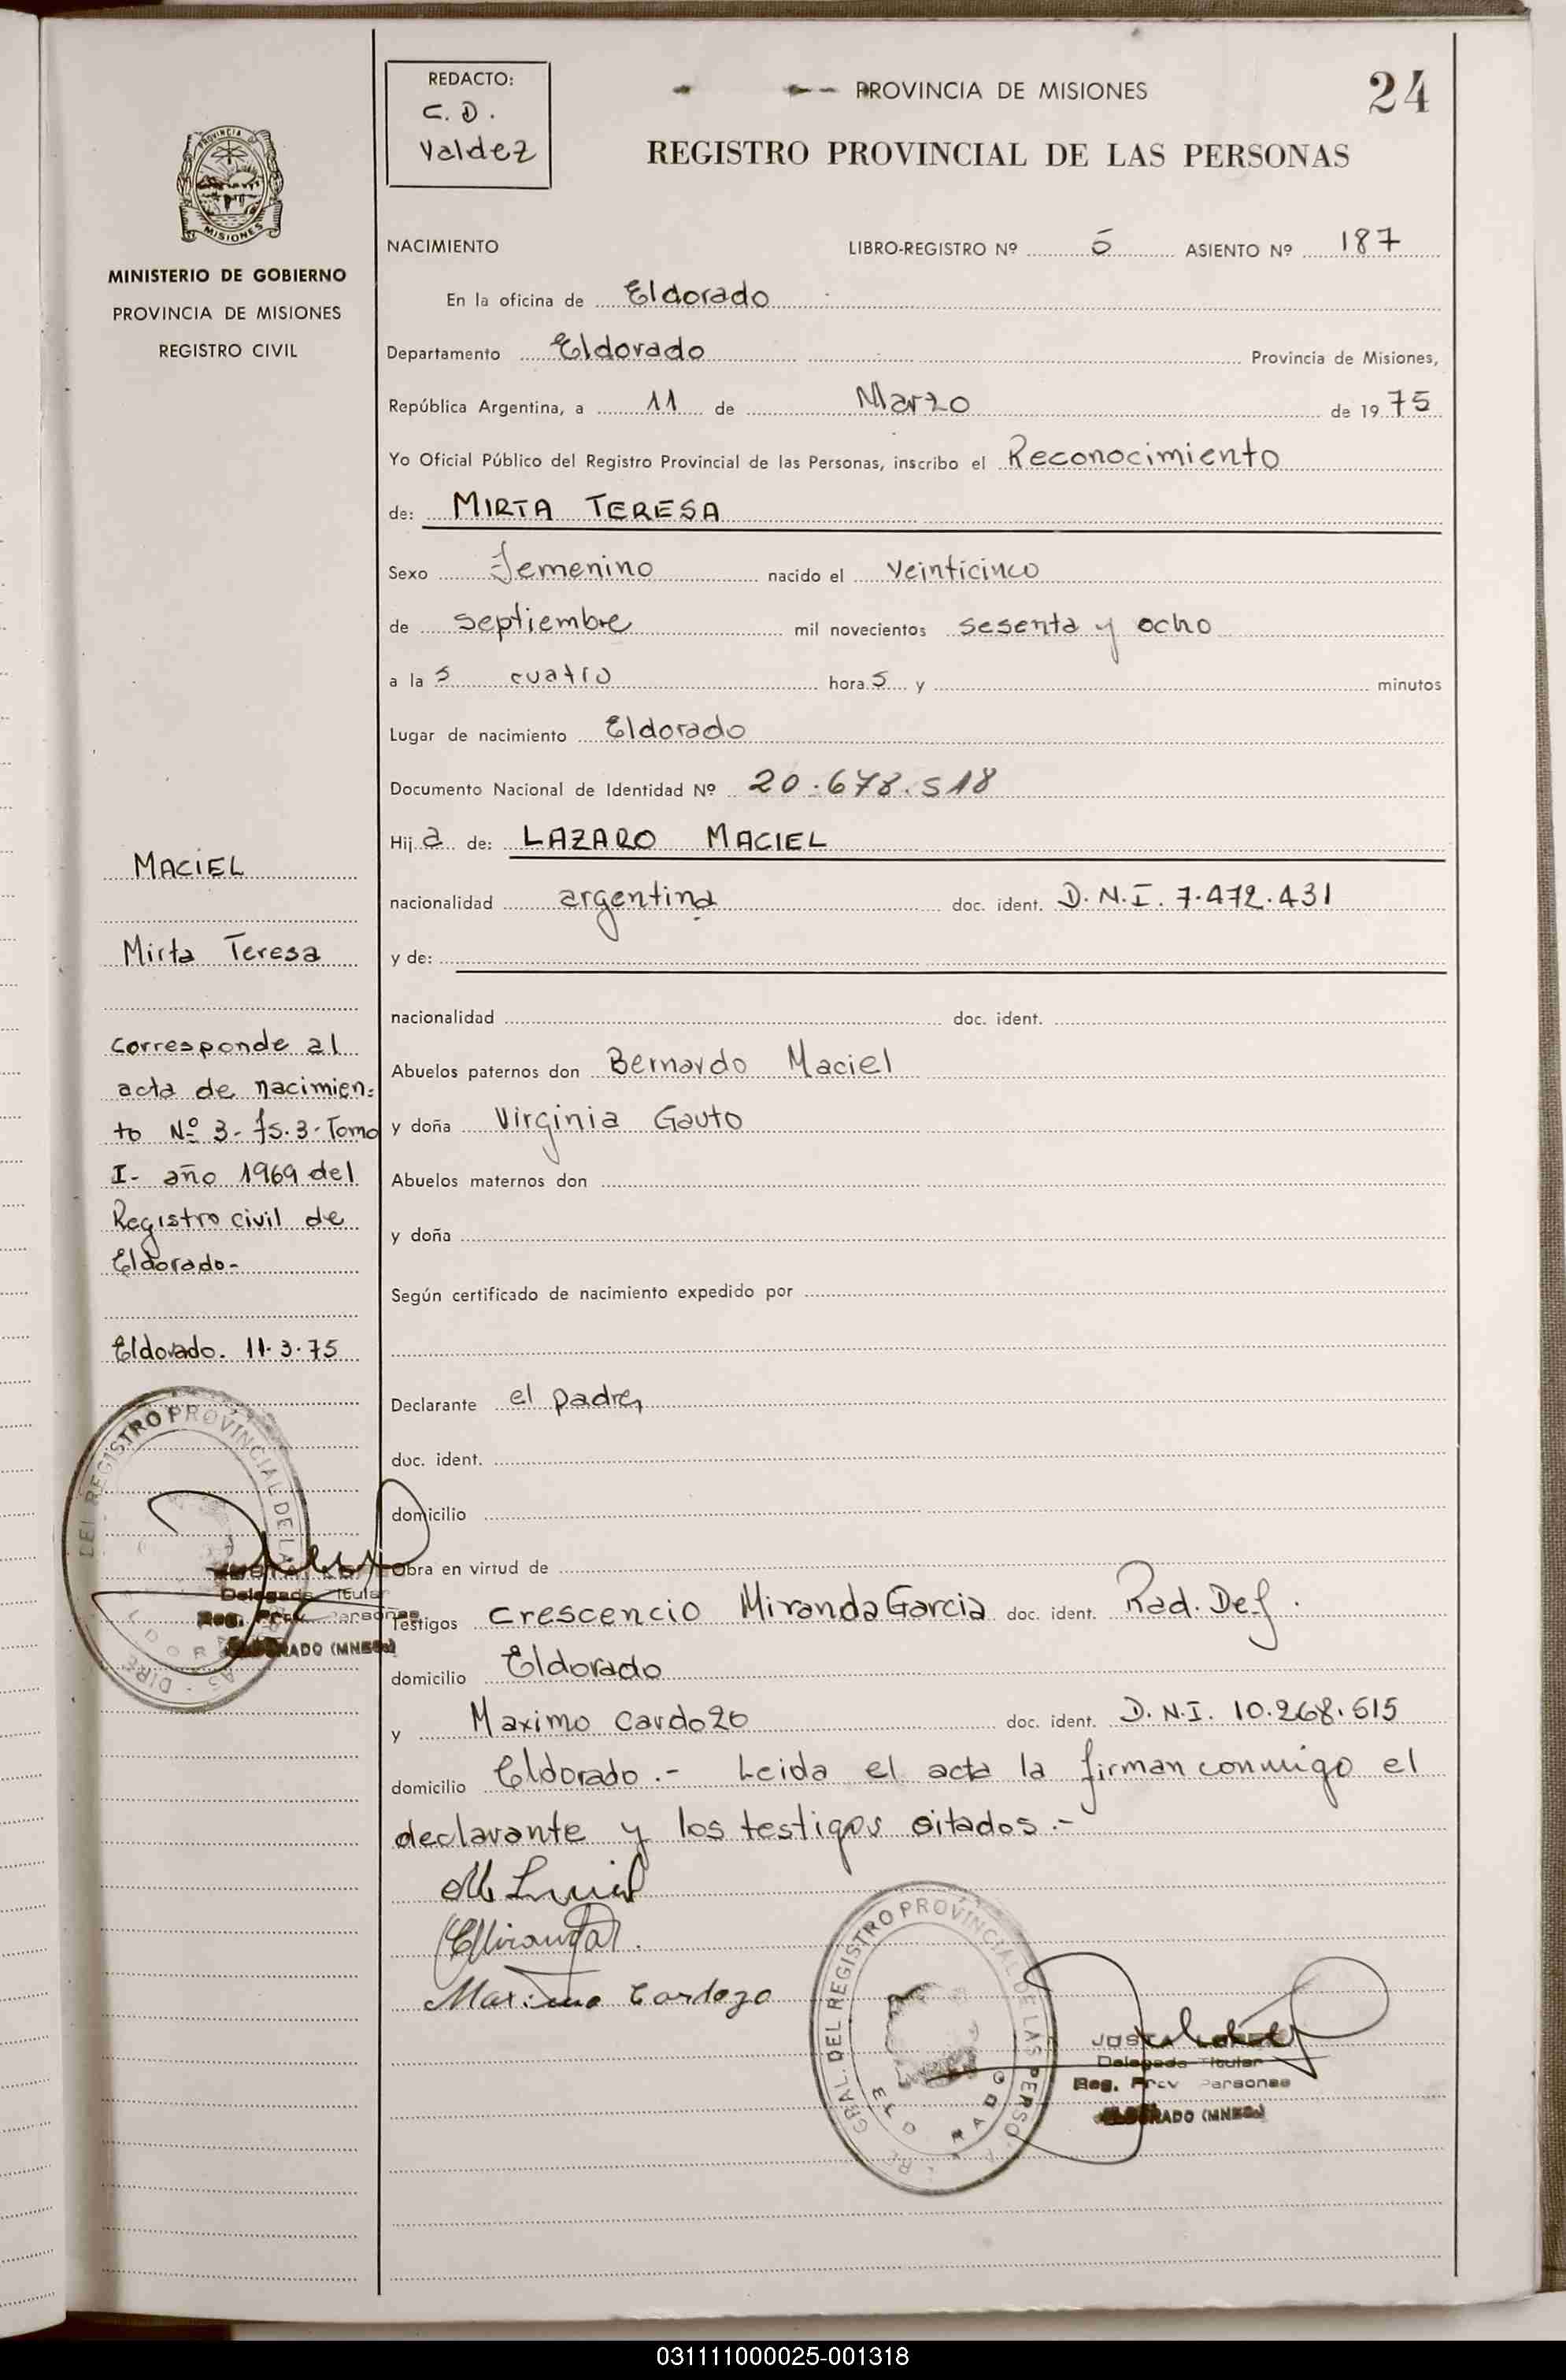 REDACTO:
C. D.
Valdez
PROVINCIA DE MISIONES
24
REGISTRO PROVINCIAL DE LAS PERSONAS
PROVINCIA DE
MISIONES
MINISTERIO DE GOBIERNO
PROVINCIA DE MISIONES
REGISTRO CIVIL
NACIMIENTO LIBRO-REGISTRO Nº ASIENTO Nº 187
En la oficina de Eldorado
Departamento Eldorado Provincia de Misiones,
República Argentina, a 11 de Marzo de 1975
Yo Oficial Público del Registro Provincial de las Personas, inscribo el Reconocimiento
de: MIRTA TERESA
Sexo Femenino nacido el veinticinco
de septiembre mil novecientos sesenta y ocho
a la s cuatro hora s y minutos
Lugar de nacimiento Eldorado
Documento Nacional de Identidad Nº 20.678.518
Hij a de: LAZARO MACIEL
nacionalidad argentina doc. ident. D.N.I. 7.472.431
y de:
nacionalidad doc. ident.
Abuelos paternos don Bernardo Maciel
y doña Virginia Gauto
Abuelos maternos don
y doña
Según certificado de nacimiento expedido por
Declarante el padre
doc. ident.
domicilio
Obra en virtud de
Testigos Crescencio Miranda Garcia doc. ident. Rad. Def.
domicilio Eldorado
y Maximo Cardozo doc. ident. D.N.I. 10.268.515
domicilio Eldorado.- Leida el acta la firman conmigo el
declarante y los testigos citados.-
Maximo Cardozo
GRAL. DEL REGISTRO PROVINCIAL DE LAS PERSO
JUSTA LOPEZ
Delegada Titular
Reg. Prov Personas
ELDORADO (MNES.)
MACIEL
Mirta Teresa
corresponde al
acta de nacimien=
to Nº 3- fs.3-Tomo
I- año 1969 del
Registro civil de
Eldorado-
Eldorado. 11-3-75
DEL REGISTRO PROVINCIAL DE LA
Delegada Titular
Reg. Prov Personas
ELDORADO (MNES.)
031111000025-001318